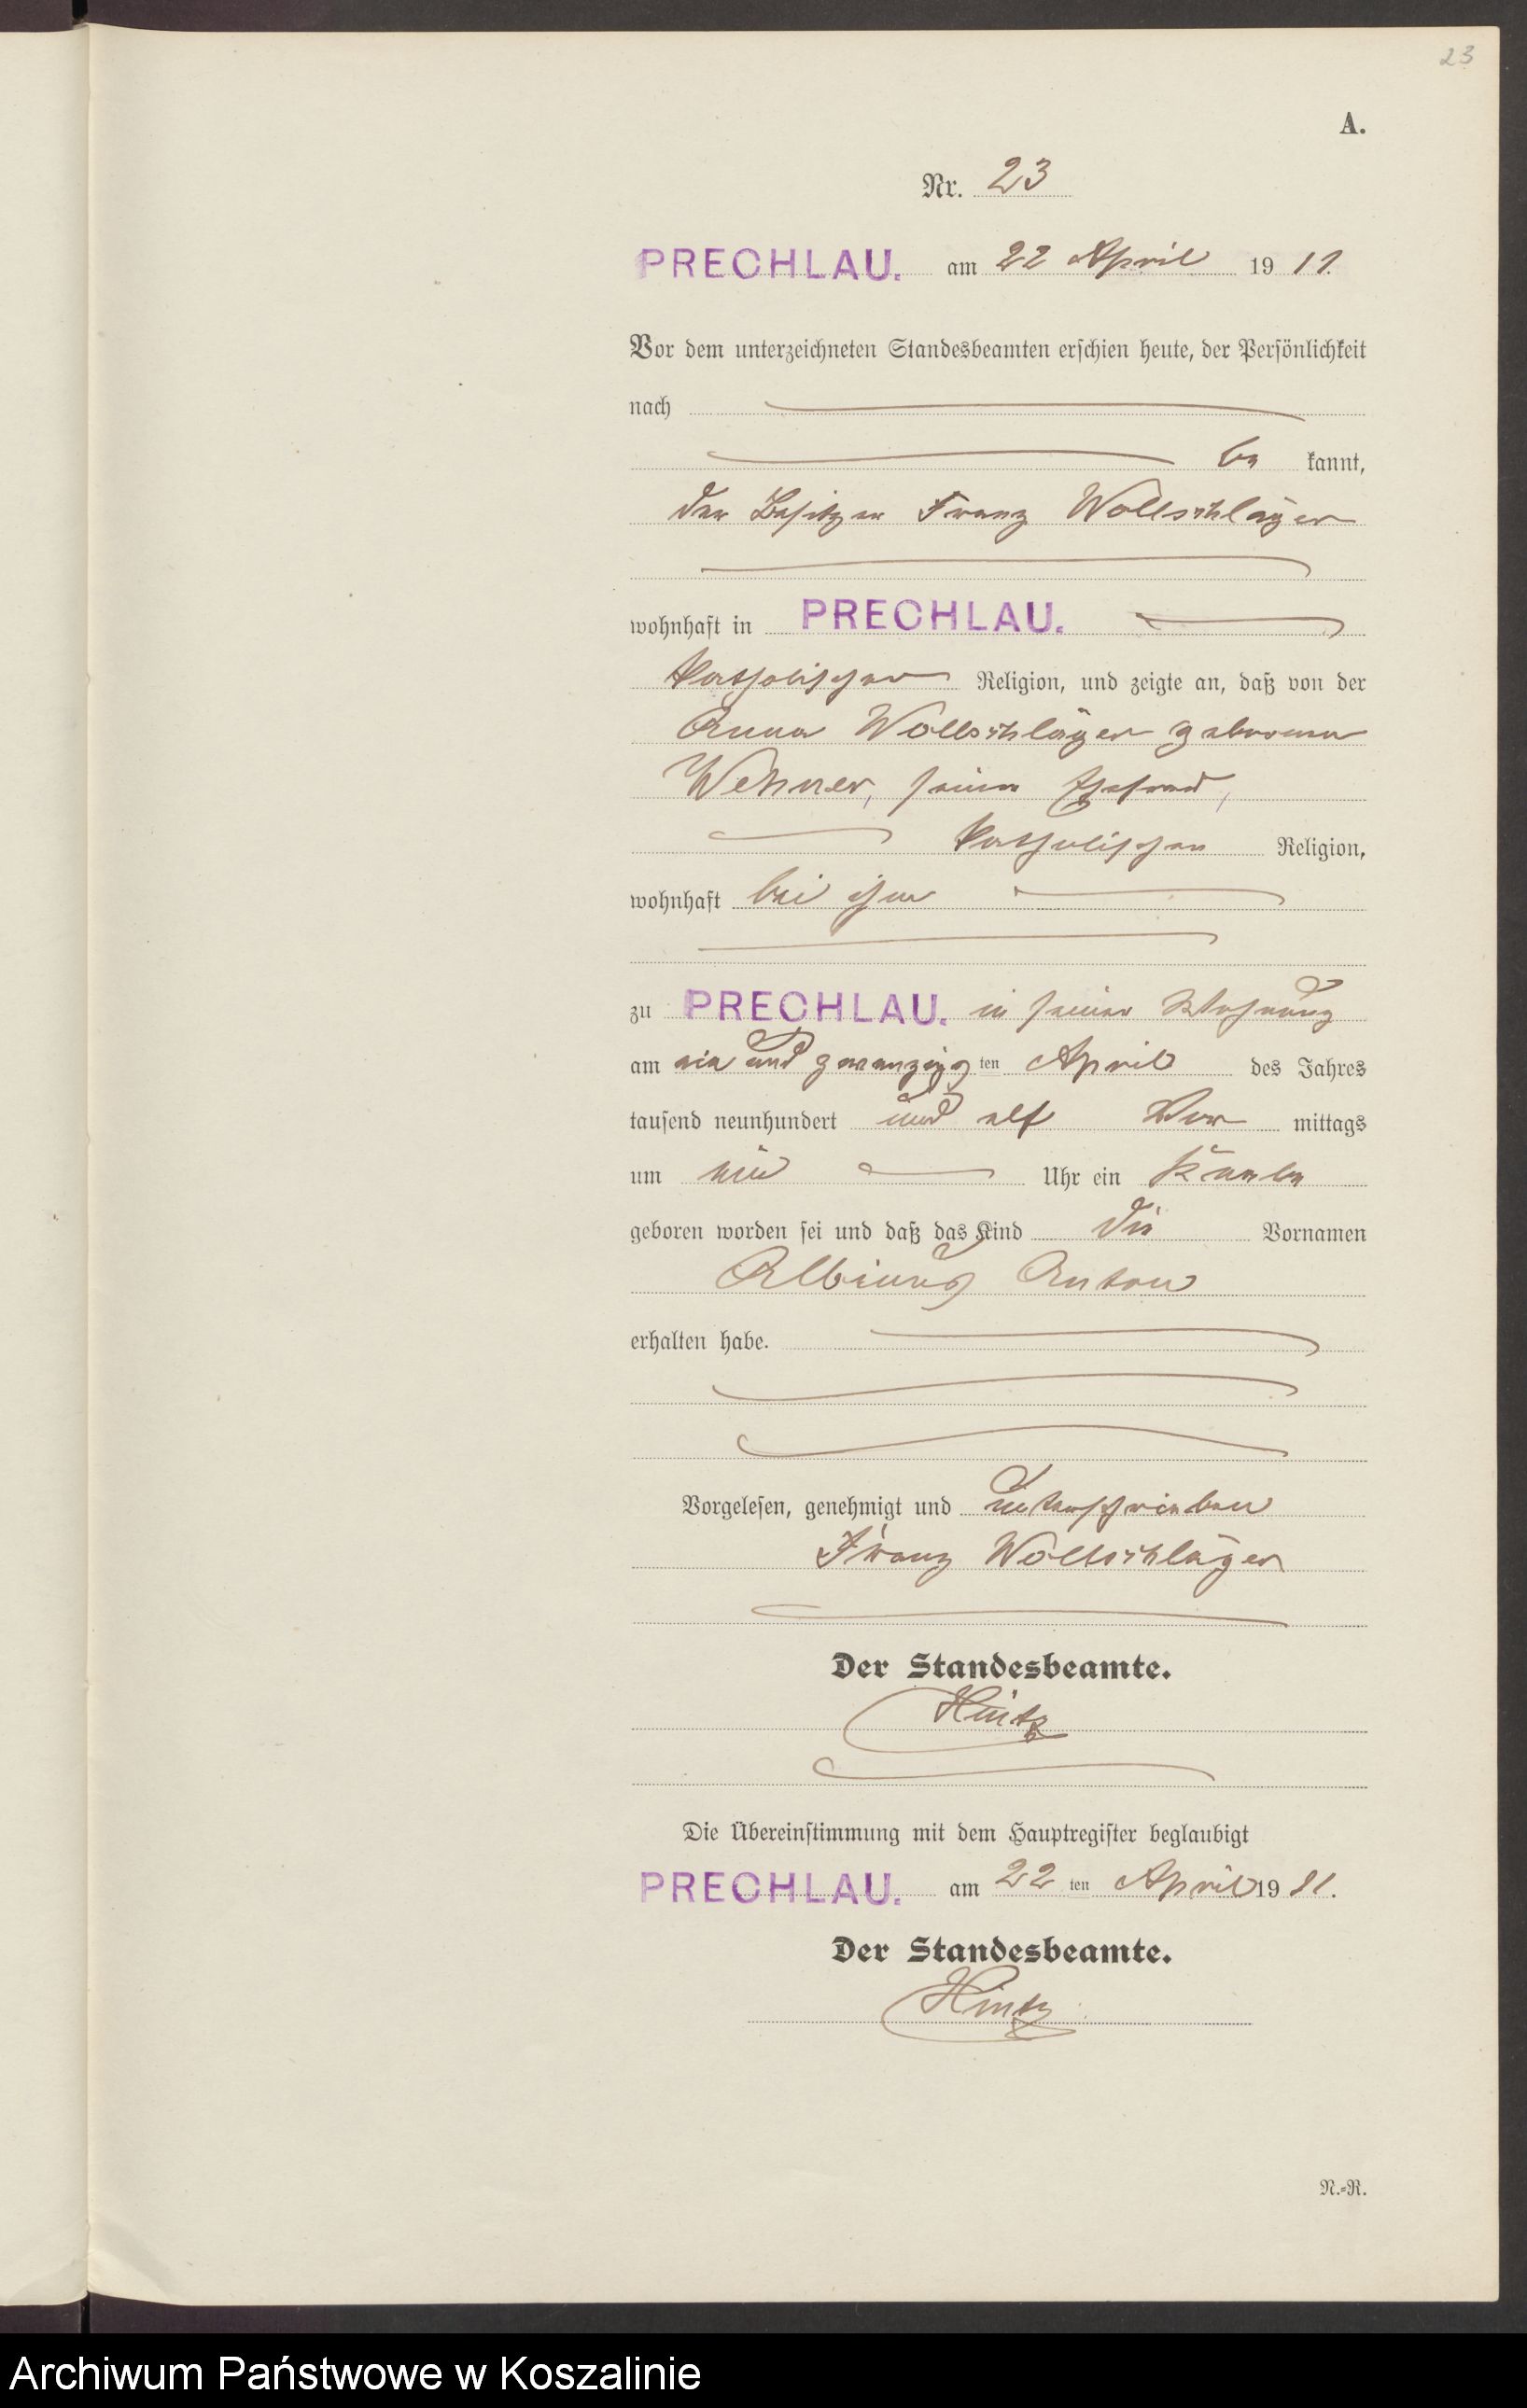 23
A.
Nr. 23
PRECHLAU. am 22 April 19 11.
Vor dem unterzeichneten Standesbeamten erschien heute, der Persönlichkeit
nach
be kannt,
der Besitzer Franz Wollschläger
wohnhaft in PRECHLAU.
katholischer Religion, und zeigte an, daß von der
Anna Wollschläger geborenen
Wehner, seiner Ehefrau,
katholischen Religion,
wohnhaft bei ihm
zu PRECHLAU. in seiner Wohnung
am ein und zwanzigsten April des Jahres
tausend neunhundert und elf Vor mittags
um Uhr ein Knabe
geboren worden sei und daß das Kind die Vornamen
Albinus Anton
erhalten habe.
Vorgelesen, genehmigt und unterschrieben
Franz Wollschläger
Der Standesbeamte.
Hintz
Die Übereinstimmung mit dem Hauptregister beglaubigt
PRECHLAU. am 22 ten April 19 11.
Der Standesbeamte.
Hintz
N.=R.
Archiwum Państwowe w Koszalinie